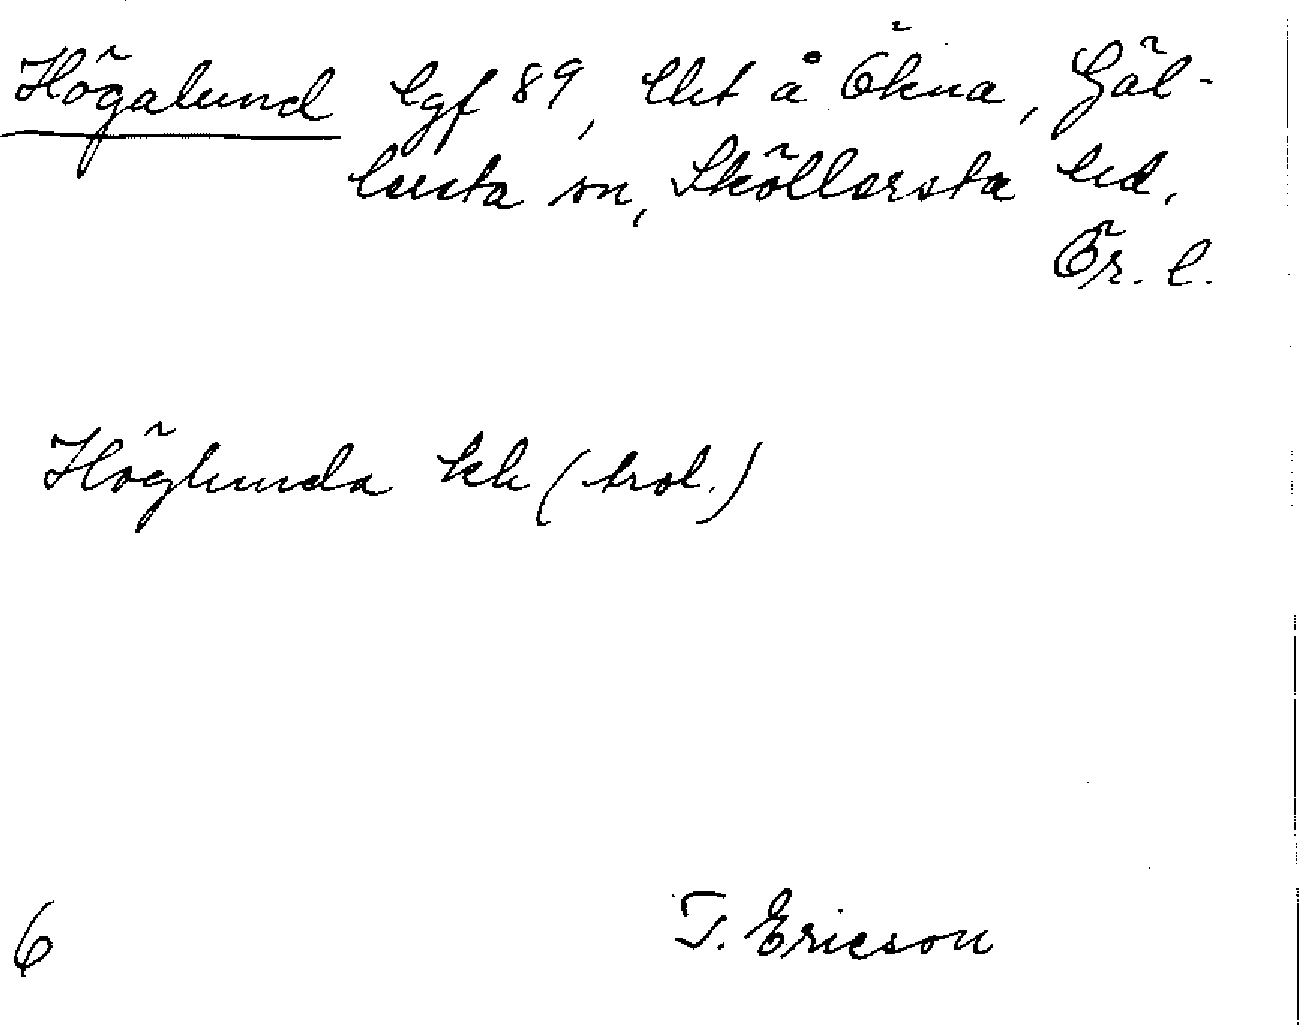 Högalund lgf 89, lht å Ökna, Gäl-
lersta sn, Sköllersta hd,
Ör. l.
Höglunda kh (trol.)
6 T. Ericson